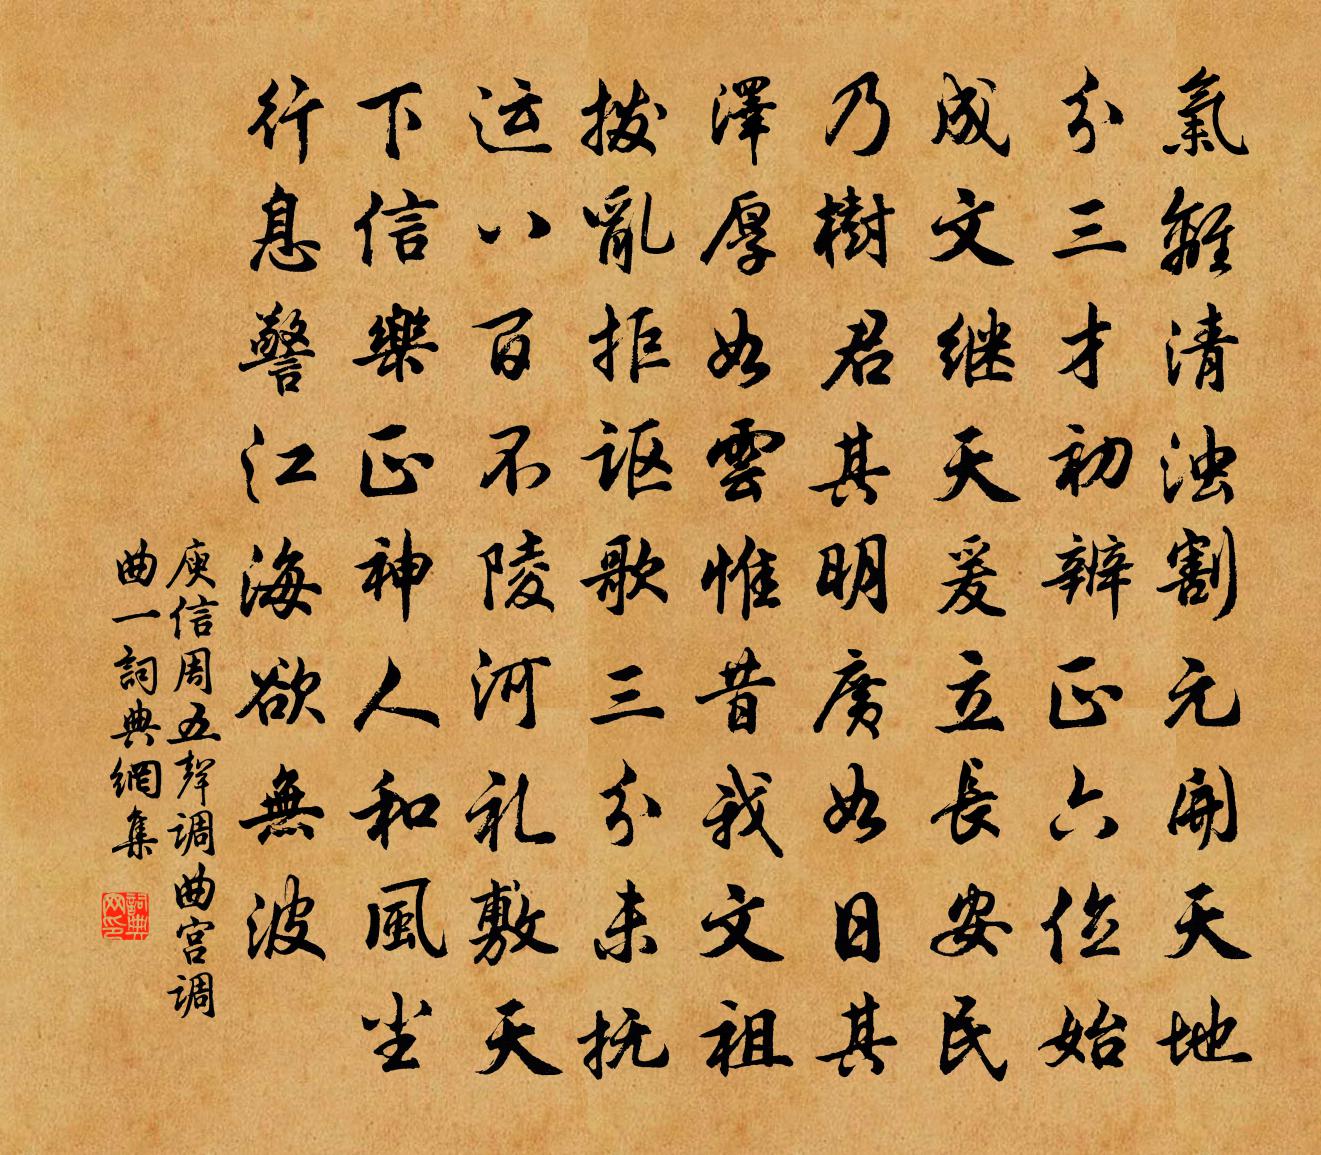 氣離清浊割元开天地
分三才初辨正六位始
成文继天爰立長安民
乃樹君其明廣如日其
澤厚如雲惟昔我文祖
拨亂拒讴歌三分未抚
运八百不陵河礼敷天
下信樂正神人和風尘
行息警江海欲無波
庾信周五聲调曲宫调
曲一詞典網集
詞典网印